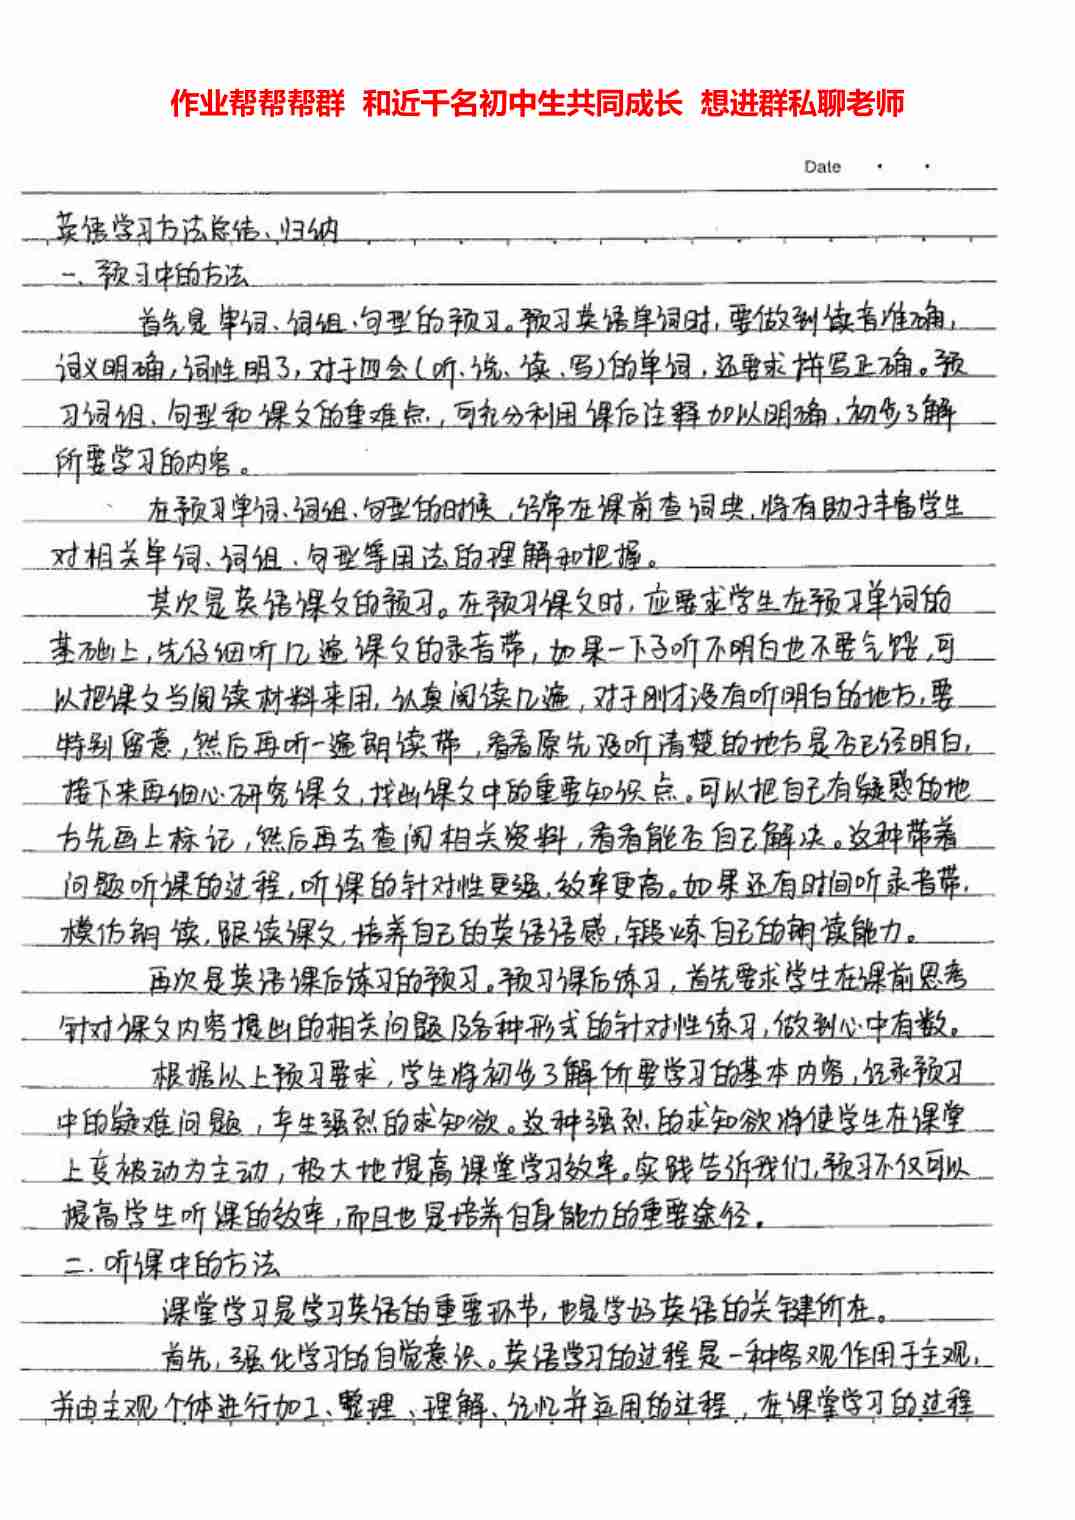 作业帮帮帮群 和近千名初中生共同成长 想进群私聊老师
Date
英语学习方法总结、归纳
一、预习中的方法
首先是单词、词组、句型的预习。预习英语单词时,要做到读音准确,
词义明确,词性明了,对于四会(听、说、读、写)的单词,还要求拼写正确。预
习词组、句型和课文的重难点,可充分利用课后注释加以明确,初步了解
所要学习的内容。
在预习单词、词组、句型的时候,经常在课前查词典,将有助于丰富学生
对相关单词、词组、句型等用法的理解和把握。
其次是英语课文的预习。在预习课文时,应要求学生在预习单词的
基础上,先仔细听几遍课文的录音带,如果一下子听不明白也不要气馁,可
以把课文当阅读材料来用,认真阅读几遍,对于刚才没有听明白的地方,要
特别留意,然后再听一遍朗读带,看看原先没听清楚的地方是否已经明白,
接下来再细心研究课文,找出课文中的重要知识点。可以把自己有疑惑的地
方先画上标记,然后再去查阅相关资料,看看能否自己解决。这种带着
问题听课的过程,听课的针对性更强,效率更高。如果还有时间听录音带,
模仿朗读,跟读课文,培养自己的英语语感,锻炼自己的朗读能力。
再次是英语课后练习的预习。预习课后练习,首先要求学生在课前思考
针对课文内容提出的相关问题及各种形式的针对性练习,做到心中有数。
根据以上预习要求,学生将初步了解所要学习的基本内容,记录预习
中的疑难问题,产生强烈的求知欲。这种强烈的求知欲将使学生在课堂
上变被动为主动,极大地提高课堂学习效率。实践告诉我们,预习不仅可以
提高学生听课的效率,而且也是培养自身能力的重要途径。
二.听课中的方法
课堂学习是学习英语的重要环节,也是学好英语的关键所在。
首先,强化学习的自觉意识。英语学习的过程是一种客观作用于主观,
并由主观个体进行加工、整理、理解、记忆并运用的过程,在课堂学习的过程